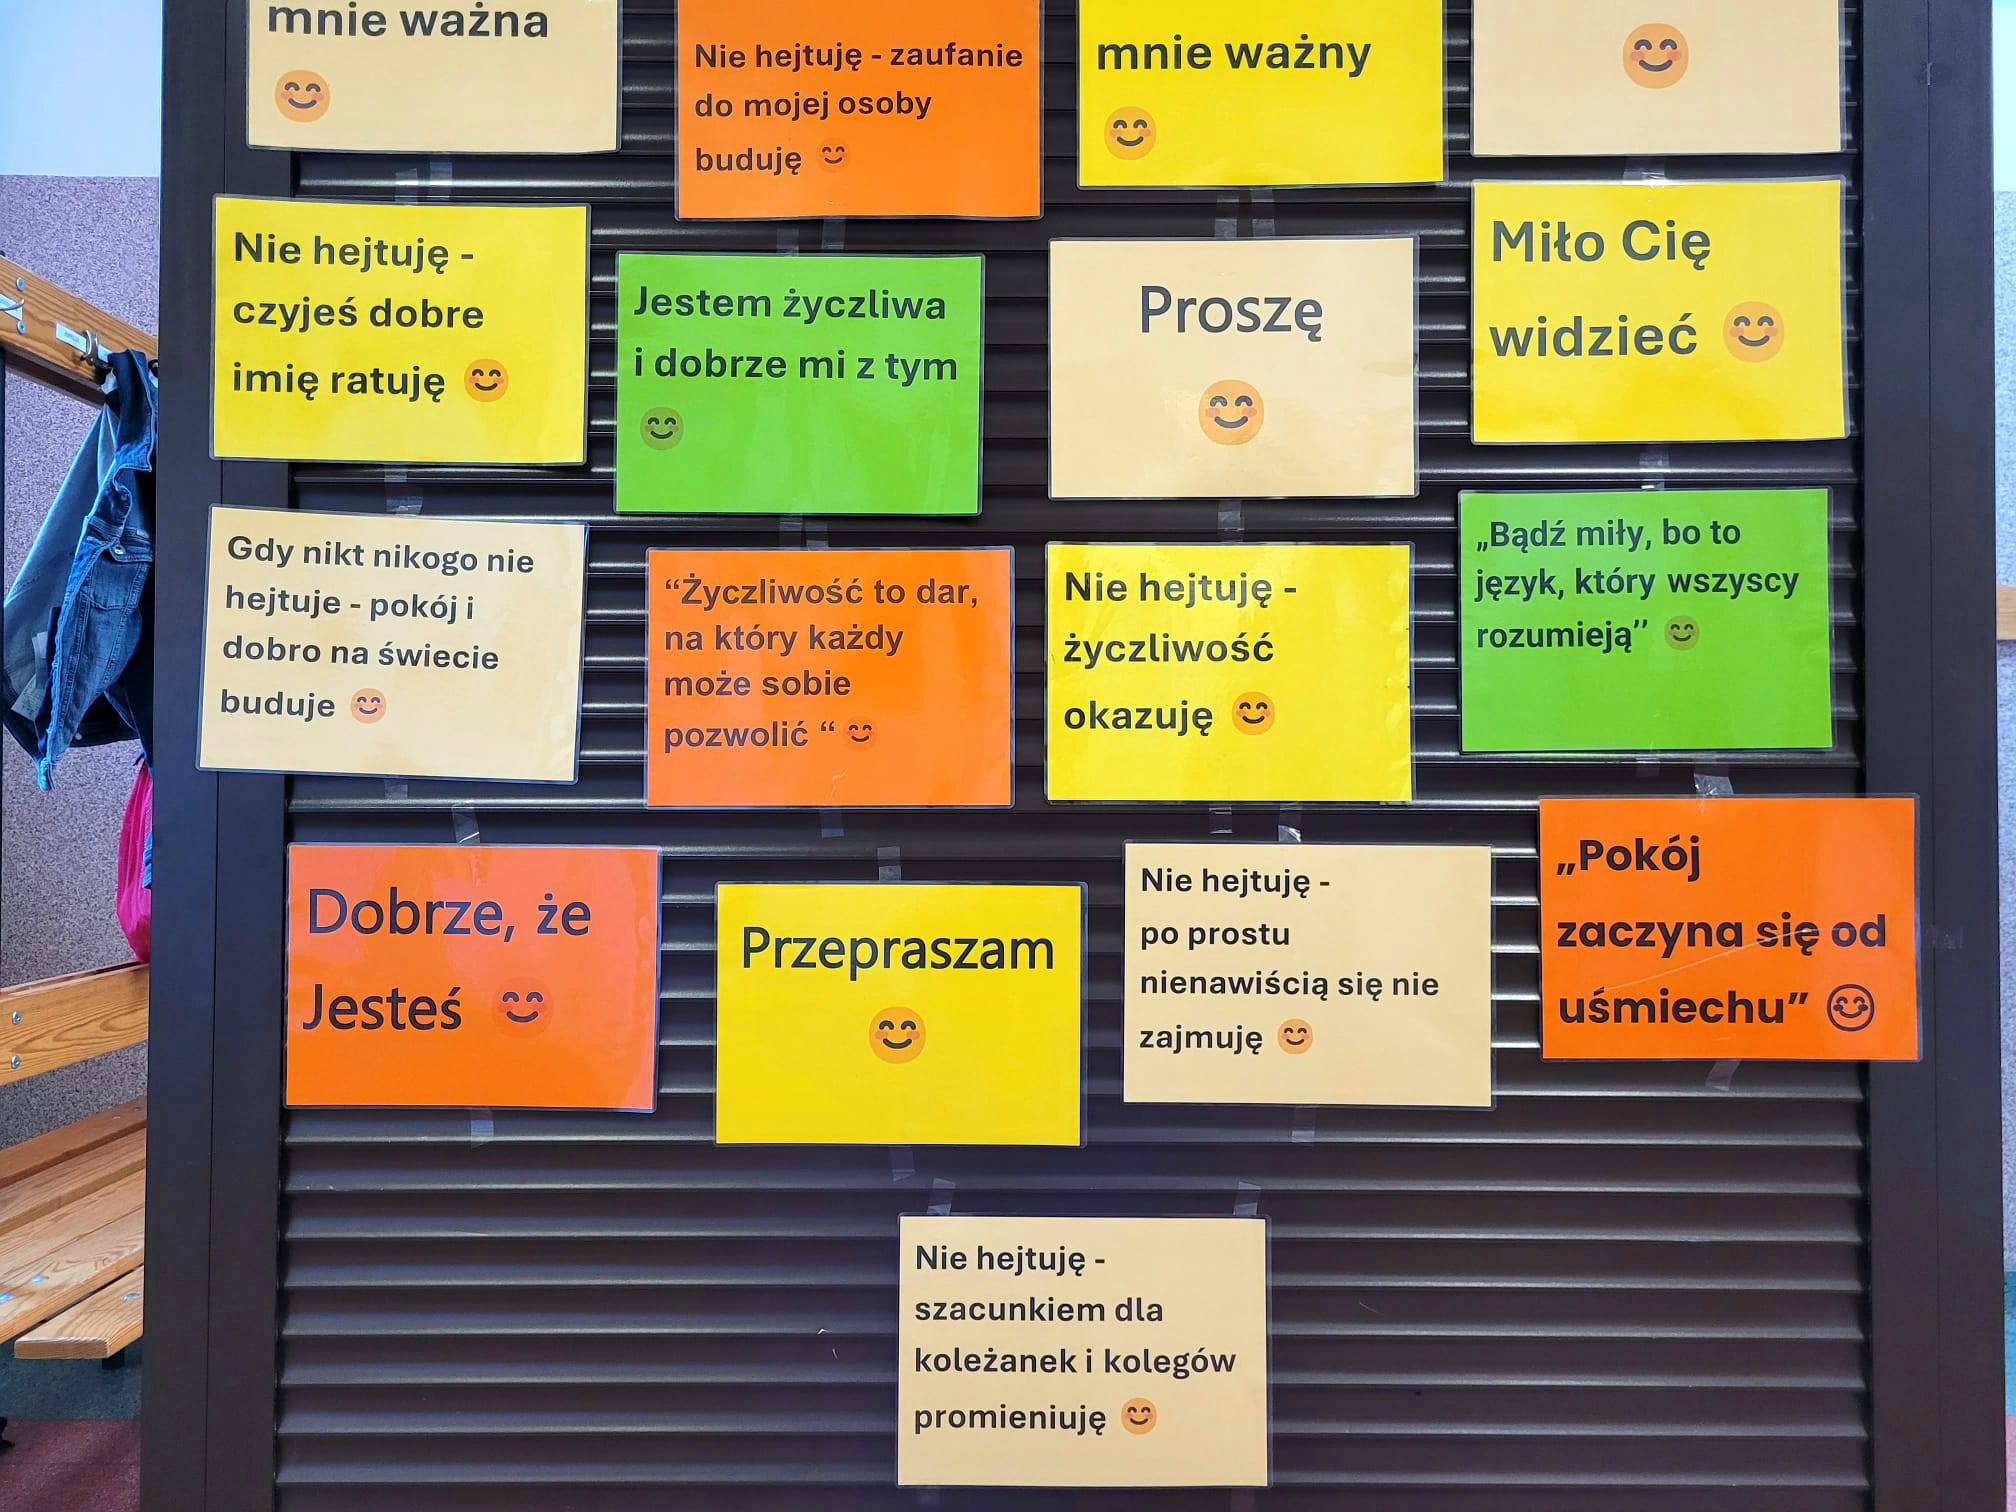 mnie ważna
Nie hejtuję - zaufanie
do mojej osoby
buduję
mnie ważny
Nie hejtuję -
czyjeś dobre
imię ratuję
Jestem życzliwa
i dobrze mi z tym
Proszę
Miło Cię
widzieć
Gdy nikt nikogo nie
hejtuje - pokój i
dobro na świecie
buduje
“Życzliwość to dar,
na który każdy
może sobie
pozwolić “
Nie hejtuję -
życzliwość
okazuję
„Bądź miły, bo to
język, który wszyscy
rozumieją’’
Dobrze, że
Jesteś
Przepraszam
Nie hejtuję -
po prostu
nienawiścią się nie
zajmuję
„Pokój
zaczyna się od
uśmiechu”
Nie hejtuję -
szacunkiem dla
koleżanek i kolegów
promieniuję